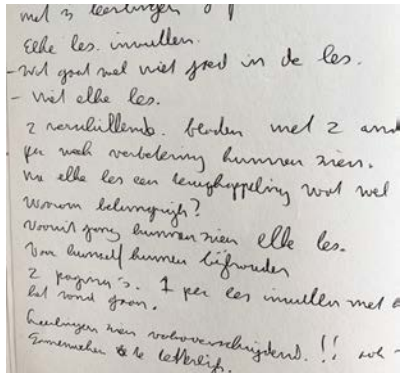 met 3 leerlingen
Elke les invullen.
- Wat gaat wel niet goed in de les.
- niet elke les.
2 verschillend. bladen met 2 and
per week verbetering kunnen zien.
na elke les een terugkoppeling wat wel
Waarom belangrijk?
Vooruit gang kunnen zien elke les.
Voor hunself kunnen bijhouden
2 pagina's. 1 per les invullen met
het rond gaan.
Leerlingen zien vakoverschrijdend. !! ook
te letterlijk.